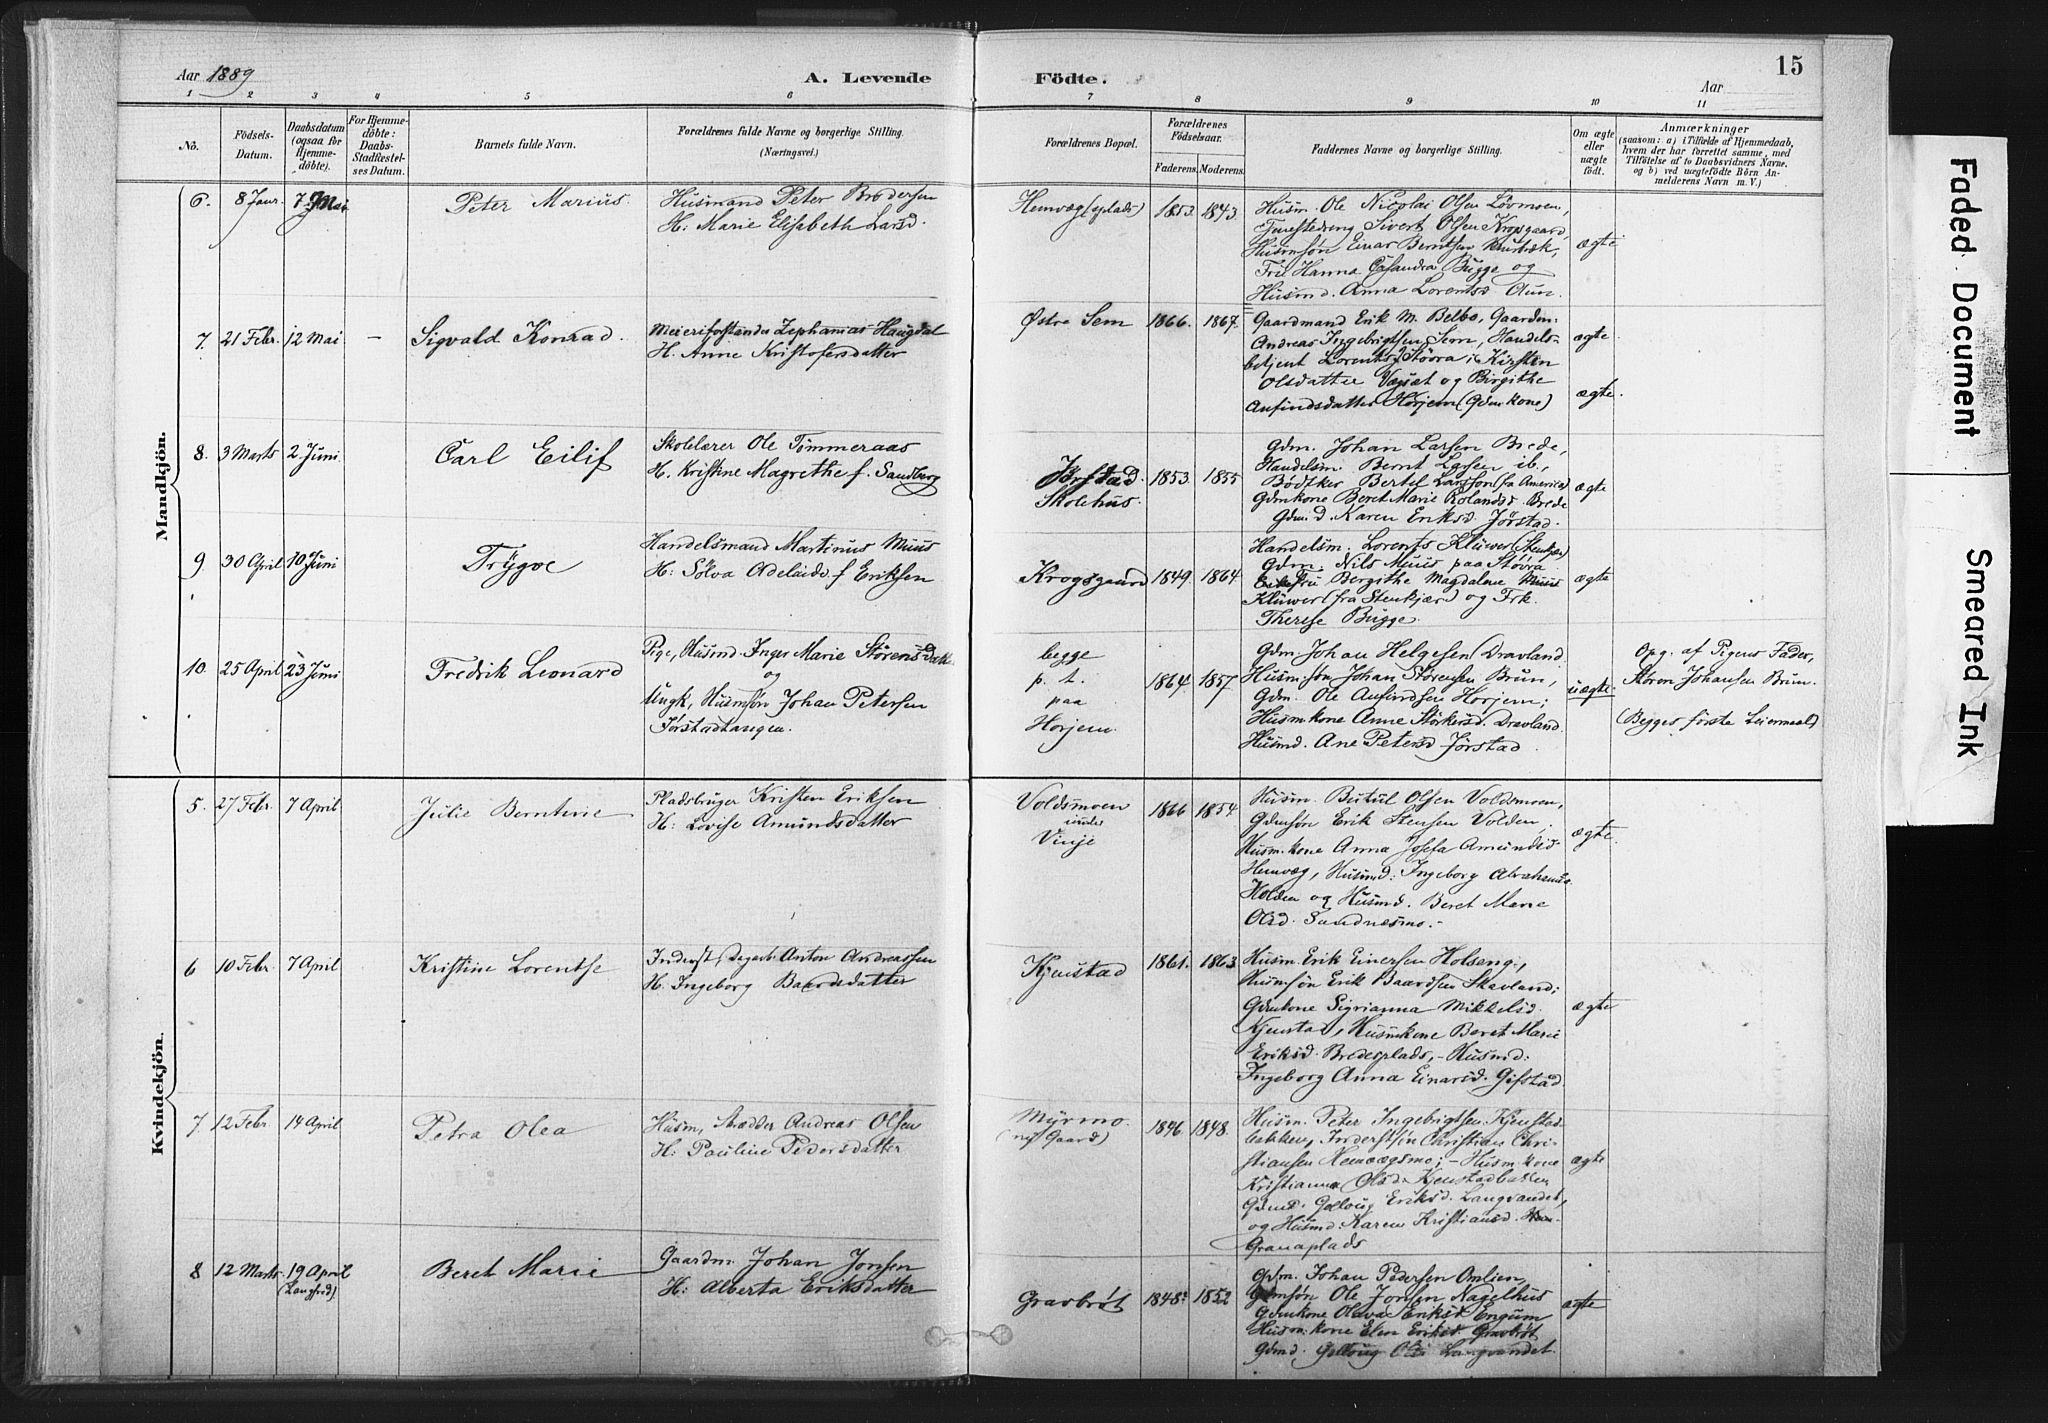 Aar 1889
A. Levende
Födte.
15
Aar
1 2 3 4 5 6 7 8 9 10 11
No.
Födsels-
Datum.
Daabsdatum
(ogsaa for
Hjemme-
döbte).
For Hjemme-
döbte:
Daabs-
Stadfæstel-
ses Datum.
Barnets fulde Navn.
Forældrenes fulde Navne og borgerlige Stilling.
(Næringsvei.)
Forældrenes Bopæl.
Forældrenes
Födselsaar.
Faderens. Moderens.
Faddernes Navne og borgerlige Stilling.
Om ægte
eller
uægte
födt.
Anmærkninger
(saasom: a) i Tilfælde af Hjemmedaab,
hvem der har forrettet samme, med
Tilföielse af to Daabsvidners Navne.
og b) ved uegtefödte Börn An-
melderens Navn m. V.)
Mandkjön.
6. 8 Janr. 7 Mai
Peter Marius.
Husmand Peter Brodersen
H: Marie Elisabeth Larsd.
Hemvæg (splads)
1853. 1843.
Husm. Ole Nicolai Olsen Lövmoen,
Tjenestedreng Sivert Olsen Krogsgaard,
Husmsön Einar Berntsen
Fru Hanna Casandra Bugge og
Husmd. Anna Lorentsd Aun.
ægte
7. 21 Febr. 12 Mai –
Sigvald Konrad.
Meieriforstander Zephanias Haugdal
H. Anne Kristofersdatter
Østre Sem
1866. 1867.
Gaardmand Erik M. Belbo, Gaardm:
Andreas Ingebrigtsen Sem, Handels-
betjent Lorents Stövra, Kirsten
Olsdatter Vægset og Birgithe
Anfindsdatter Horjem (Gdmkone)
ægte
ægte.
8. 3 Marts 2 Juni
Carl Eilif
Skolelærer Ole Tömmeraas
H. Kristine Magrethe f. Sandberg
Jörstad
Skolehus.
1853. 1855
Gdm. Johan Larsen Brede,
Handelsm. Bernt Larsen ib.,
Bödtker Bertil Larsson (fra Amerika)
Gdmkone Beret Marie Rolandsd Brede
Gdm. d. Karen Eriksd Jörstad.
ægte
9 30 April 10 Juni
Trÿgve
Handelsmand Martinus Muus
H: Sölva Adelaide f Eriksen
Krogsgaard
1849 1864
Handelsm. Lorents Klüwer (Stenkjær)
Gdm. Nils Muus paa Stövra
Fru Bergithe Magdalene Muus
Klüwer (fra Stenkjær) og Frk.
Therese Bugge.
ægte
10. 25 April 23 Juni
Fredrik Leonard
Pige, Husmd. Inger Marie Störensdatt.
og
Ungk, Husmsön Johan Petersen
Jörstadtangen.
begge
p. t.
paa
Horjem.
1864 1857
Gdm. Johan Helgesen Dravland
Husm. sön Johan Störensen Brun,
Gdm. Ole Anfindsen Horjem;
Husmkone Anne Störkersd. Dravland
Husmd. Ane Petersd Jörstad.
uægte
Opg. af Pigens Fader,
Stören Johansen Brun.
(Begges förste Leiermaal)
Kvindekjön.
5. 27 Febr. 7 April
Julie Berntine
Pladsbruger Kristen Eriksen
H: Lovise Amundsdatter
Voldsmoen
under
Vinje
1866 1854.
Husm. Butul Olsen Voldsmoen,
Gdmsön Erik Stensen Volden,
Husm.kone Anna Josefa Amundsd
Hemvæg, Husmd: Ingeborg Abrahamsd.
Holden og Husmd. Beret Marie
Olsd. Sandnesmo.-
ægte
6 10 Febr 7 April
Kristine Lorentse
Inderst, Dagarb. Anton Andreassen
H. Ingeborg Baardsdatter
Kjenstad
1861. 1863
Husm. Erik Einersen Holseng,
Husmsön Erik Baardsen Skavland;
Gdmkone Sigrianna Mikkelsd.
Kjenstad, Husmkone Beret Marie
Eriksd. Bredesplads, – Husmd:
Ingeborg Anna Einarsd. Gifstad
ægte
7. 12 Febr. 14 April
Petra Olea
Husm, Skrædder Andreas Olsen
H: Pauline Pedersdatter
Myrmo
(ny Gaard)
1846. 1848.
Husm. Peter Ingebrigtsen Kjenstad-
bakken, Inderstsön Christian Chri-
stiansen Hemvægsmo; – Husmkone
Kristianna Olsd. Kjenstadbakken
Gdmd. Gollaug Eriksd. Langvandet,
og Husmd. Karen Kristiansd.
Granaplads
ægte
8 12 Marts 19 April
(Langfred)
Beret Marie
Gaardm. Johan Jonsen
H: Alberta Eriksdatter
Gravbröt
1848 1852
Gdm. Johan Pedersen Omlien,
Gdmsön Ole Jonsen Nagelhus
Gdmkone Olava Eriksd Engum
Husm.kone Elen Eriksd. Gravbröt
Gdmd. Gollaug Ols Langvandet.
ægte
Faded Document
Smeared Ink